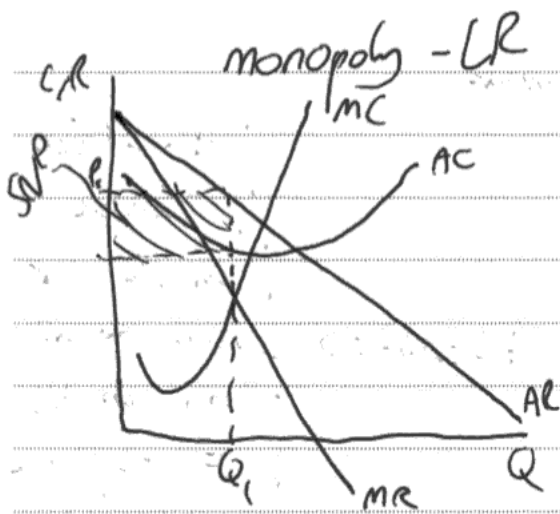 monopoly - LR
C/R
MC
AC
SNP
P₁
AR
Q₁
Q
MR